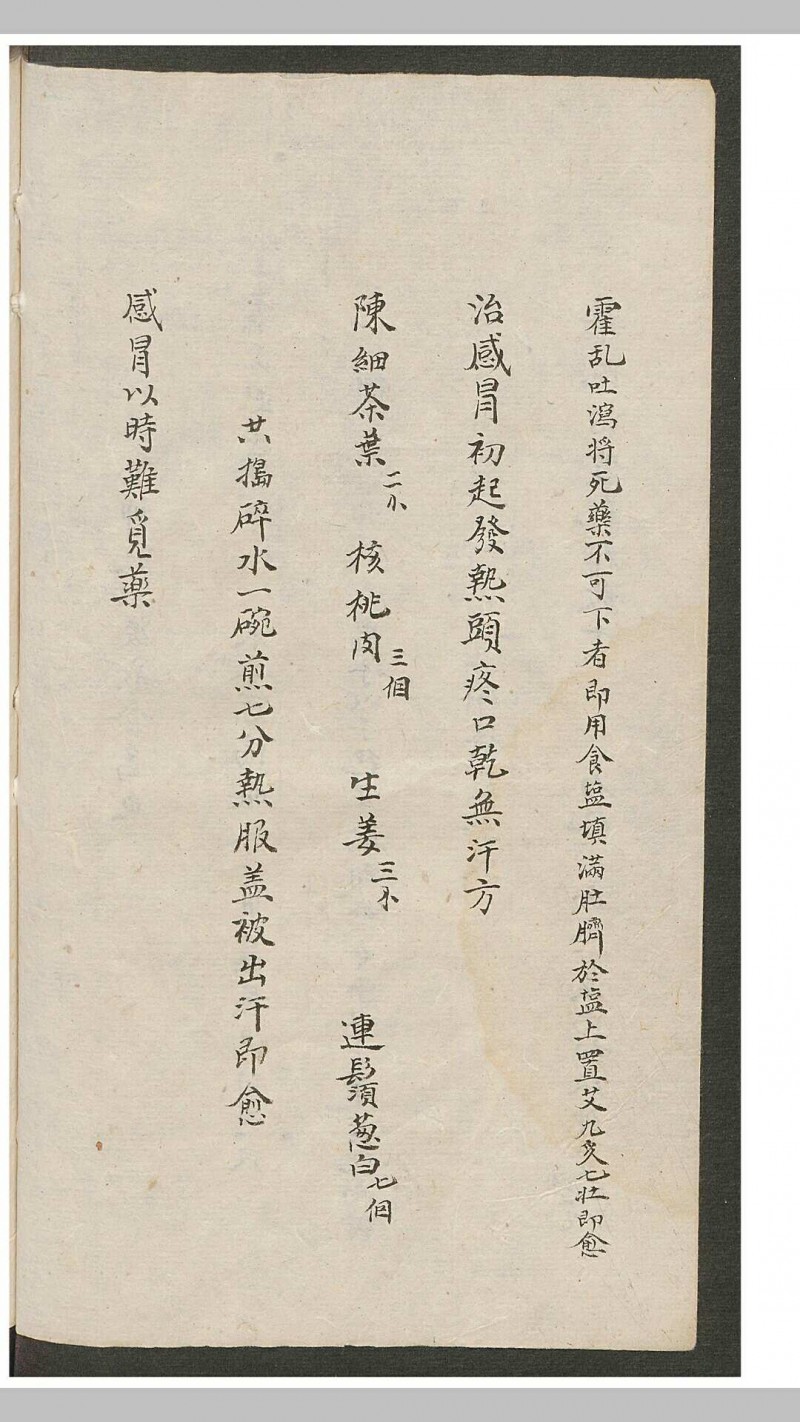 霍乱吐瀉将死藥不可下者即用食盐填滿肚臍於盐上置艾九炙七壯即愈
治感冒初起發熱頭疼口乾無汗方
陳細茶葉二小 核桃肉三個 生姜三小 連鬚葱白七個
共搗碎水一碗煎七分熱服盖被出汗即愈
感冒以時難覓藥